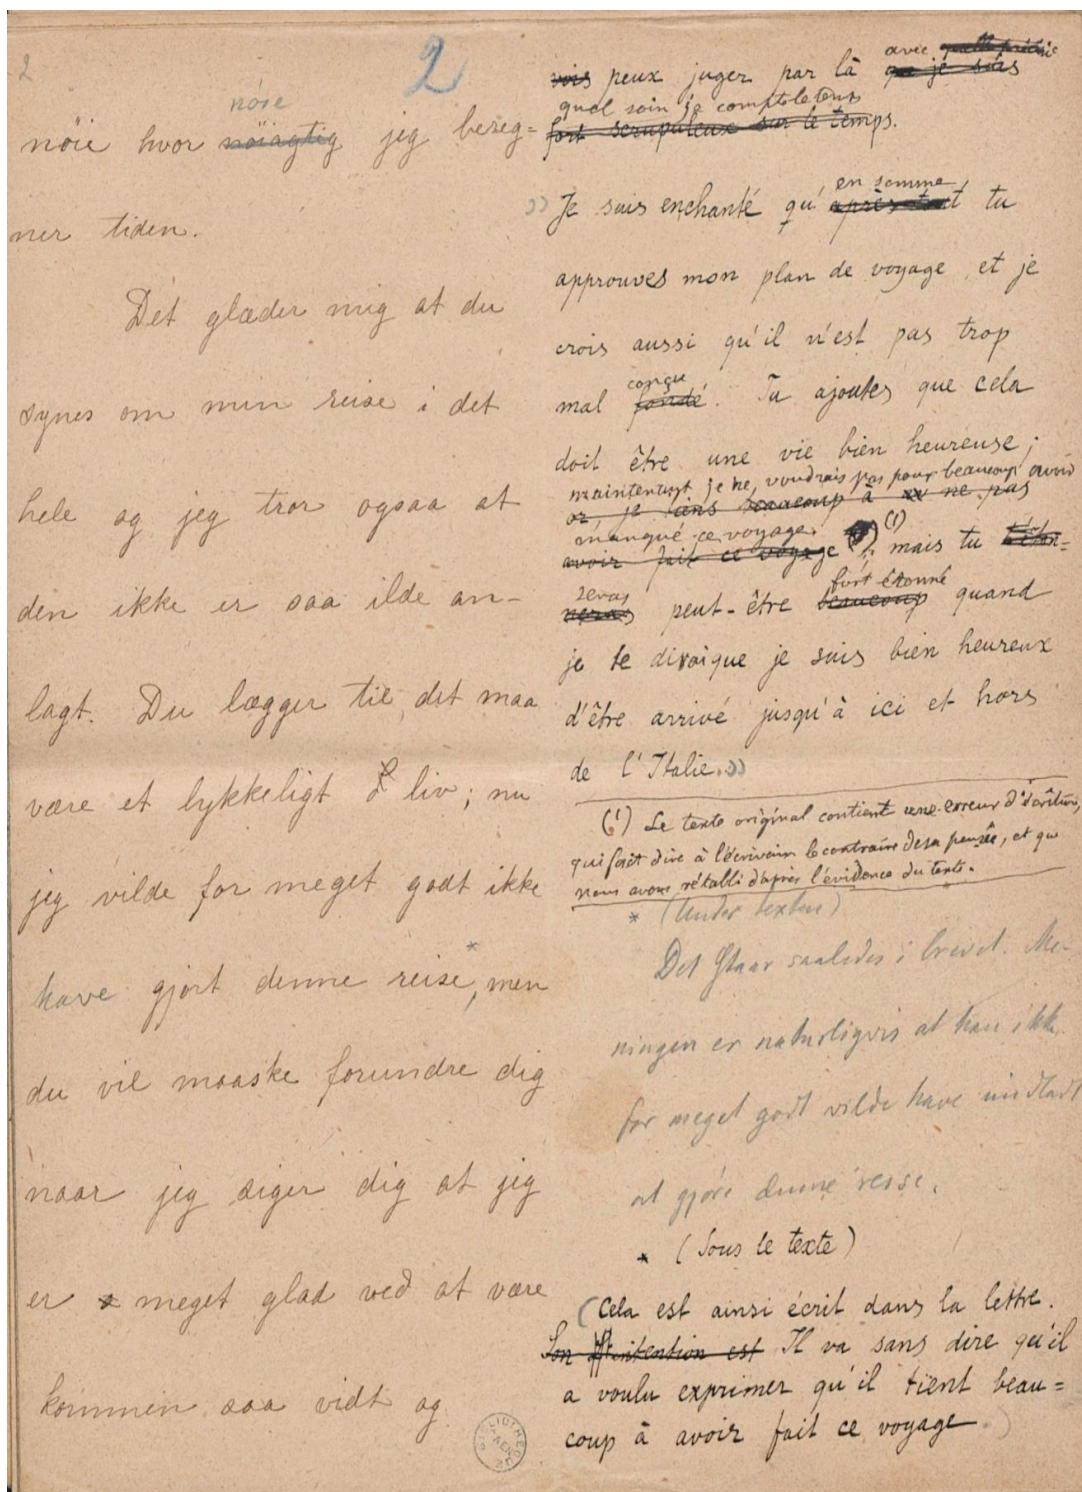 2
2
nöie
nöie hvor nöiagtig jeg bereg=
ner tiden.
Det glæder mig at du
synes om min reise i det
hele og jeg tror ogsaa at
den ikke er saa ilde an-
lagt. Du lægger til, det maa
være et lykkeligt liv; nu
jeg vilde for meget godt ikke
have gjort denne reise*, men
du vil maaske forundre dig
naar jeg siger dig at jeg
er meget glad ved at være
kommen saa vidt og
avec quelle précis
vois peux juger par là que je suis
quel soin je compte le temps
fort scrupuleux sur le temps.
en somme,
»Je suis enchanté qu'après tout tu
approuves mon plan de voyage et je
crois aussi qu'il n'est pas trop
conçu
mal fondé. Tu ajoutes que cela
doit être une vie bien heureuse;
maintenant je ne voudrais pas pour beaucoup avoir
or je tiens beaucoup à ne pas
manqué ce voyage
avoir fait ce voyage (1); mais tu t'éton=
seras fort étonné
neras peut-être beaucoup quand
je te dirai que je suis bien heureux
d'être arrivé jusqu'à ici et hors
de l'Italie.»
(1) Le texte original contient une erreur d'écriture,
qui fait dire à l'écrivain le contraire de sa pensée, et que
nous avons rétabli d'après l'évidence du texte.
* (Under texten)
Det staar saaledes i brevet. Me-
ningen er naturligvis at han ikke
for meget godt vilde have undladt
at gjöre denne reise.
* (Sous le texte)
(Cela est ainsi écrit dans la lettre.
Son intention est Il va sans dire qu'il
a voulu exprimer qu'il tient beau=
coup à avoir fait ce voyage)